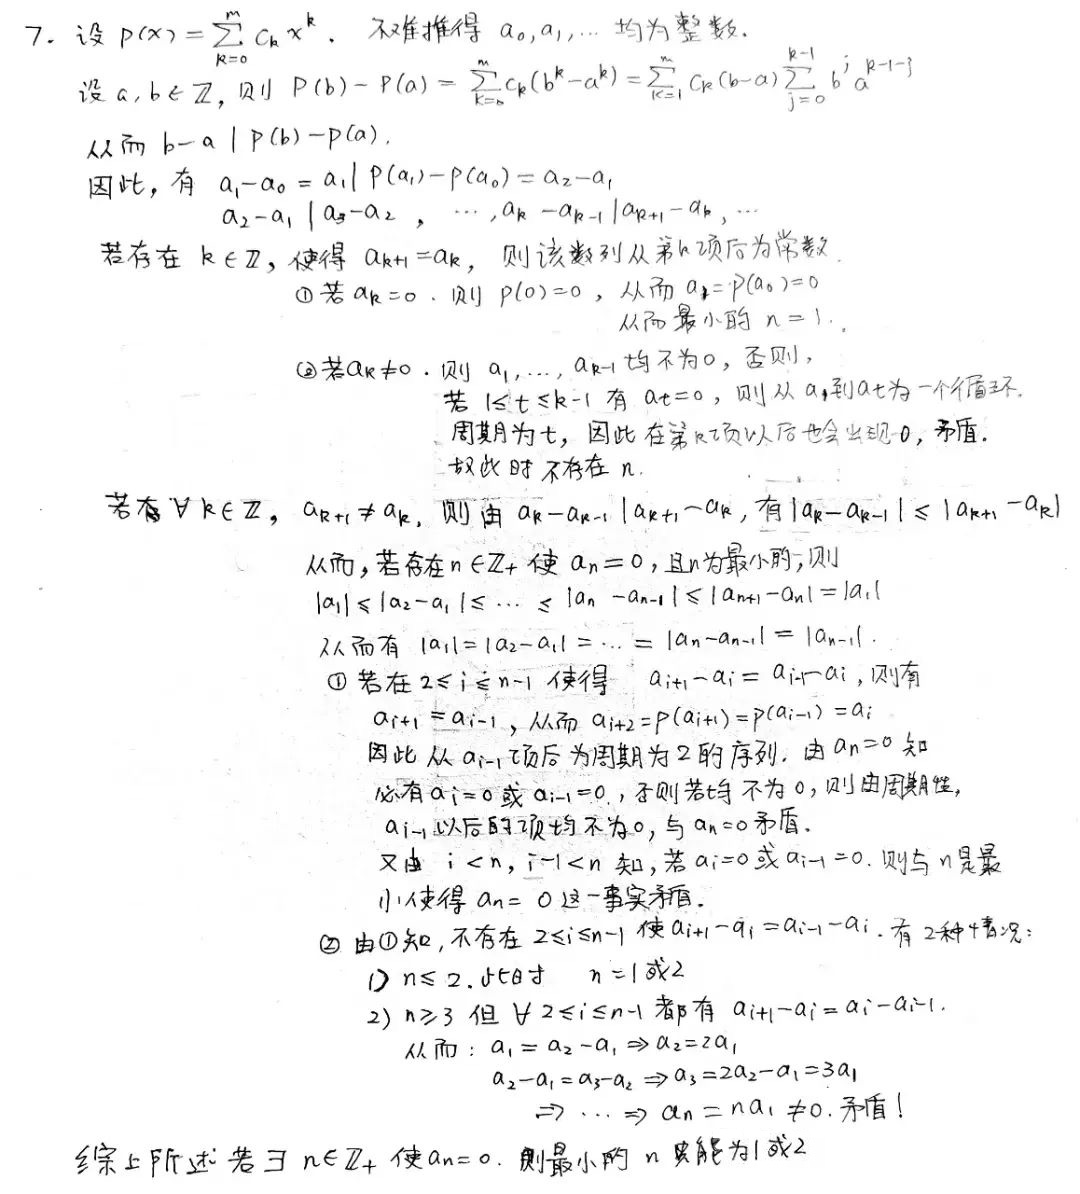 7. 设 P(x) = \sum_{k=0}^{m} c_k x^k. 不难推得 a_0, a_1, … 均为整数.
设 a, b ∈ Z, 则 P(b) - P(a) = \sum_{k=0}^{m} c_k(b^k - a^k) = \sum_{k=1}^{m} c_k(b-a) \sum_{j=0}^{k-1} b^j a^{k-1-j}
从而 b-a | P(b)-P(a).
因此, 有 a_1-a_0 = a_1 | P(a_1)-P(a_0) = a_2-a_1
a_2-a_1 | a_3-a_2, …, a_k-a_{k-1} | a_{k+1}-a_k, …
若存在 k∈Z, 使得 a_{k+1}=a_k, 则该数列从第k项后为常数.
① 若 a_k=0. 则 P(0)=0, 从而 a_1=P(a_0)=0
从而最小的 n=1.
② 若 a_k≠0. 则 a_1, …, a_{k-1} 均不为0, 否则,
若 1≤t≤k-1 有 a_t=0, 则从 a_1到a_t为一个循环.
周期为t, 因此在第k项以后也会出现0, 矛盾.
故此时不存在 n.
若 ∀k∈Z, a_{k+1}≠a_k, 则由 a_k-a_{k-1} | a_{k+1}-a_k, 有 |a_k-a_{k-1}| ≤ |a_{k+1}-a_k|
从而, 若存在 n∈Z_+ 使 a_n=0, 且n为最小的, 则
|a_1| ≤ |a_2-a_1| ≤ … ≤ |a_n-a_{n-1}| ≤ |a_{n+1}-a_n| = |a_1|
从而有 |a_1| = |a_2-a_1| = … = |a_n-a_{n-1}| = |a_{n-1}|.
① 若在 2≤i≤n-1 使得 a_{i+1}-a_i = a_{i-1}-a_i, 则有
a_{i+1}=a_{i-1}, 从而 a_{i+2}=P(a_{i+1})=P(a_{i-1})=a_i
因此从 a_{i-1} 项后为周期为2的序列. 由 a_n=0 知
必有 a_i=0 或 a_{i-1}=0, 否则若均不为0, 则由周期性,
a_{i-1} 以后的项均不为0, 与 a_n=0 矛盾.
又由 i<n, i-1<n 知, 若 a_i=0 或 a_{i-1}=0. 则与 n 是最
小使得 a_n=0 这一事实矛盾.
② 由①知, 不存在 2≤i≤n-1 使 a_{i+1}-a_i=a_{i-1}-a_i. 有2种情况:
1) n≤2. 此时 n=1或2
2) n≥3 但 ∀ 2≤i≤n-1 都有 a_{i+1}-a_i=a_i-a_{i-1}.
从而: a_1=a_2-a_1 ⇒ a_2=2a_1
a_2-a_1=a_3-a_2 ⇒ a_3=2a_2-a_1=3a_1
⇒ … ⇒ a_n=na_1≠0. 矛盾!
综上所述 若∃ n∈Z_+ 使 a_n=0. 则最小的 n 只能为1或2